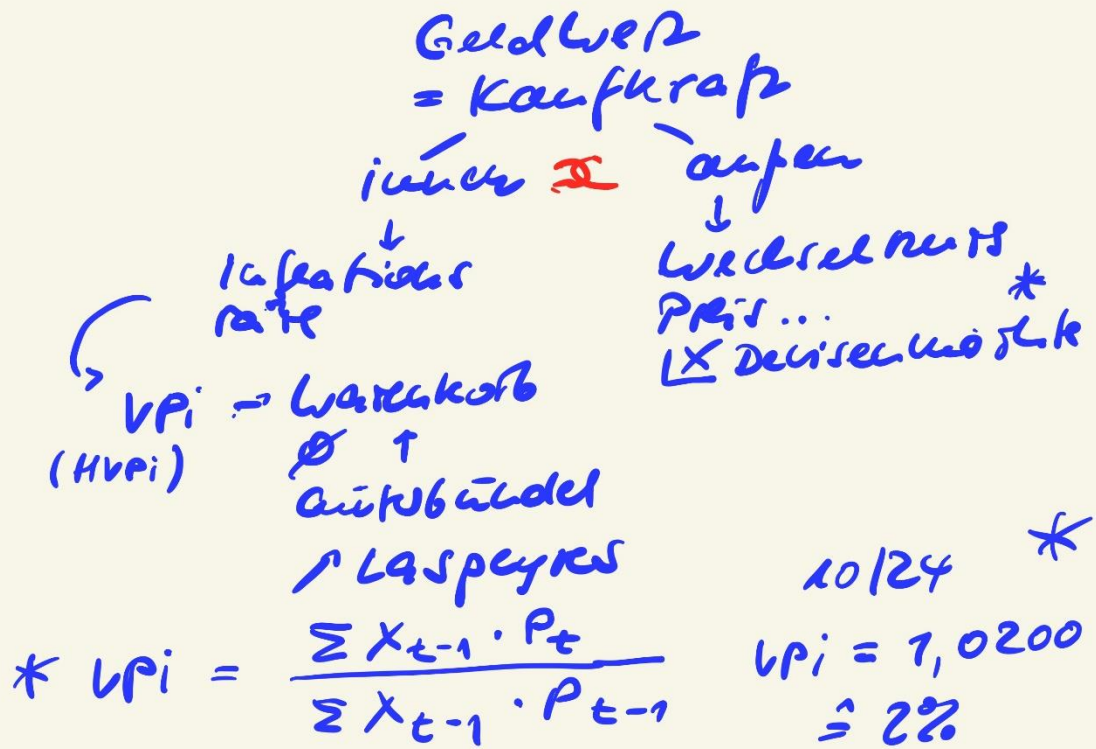 Geldwert
= Kaufkraft
innen außen
↓ ↓
Inflations
rate
Wechselkurs
Preis... *
Devisenmärkte
VPi → Warenkorb
(HVPi) Ø ↑
Güterbündel
↗ Laspeyres
10/24 *
* VPi = Σ X_{t-1} · P_t / Σ X_{t-1} · P_{t-1}
VPi = 1,0200
≙ 2%